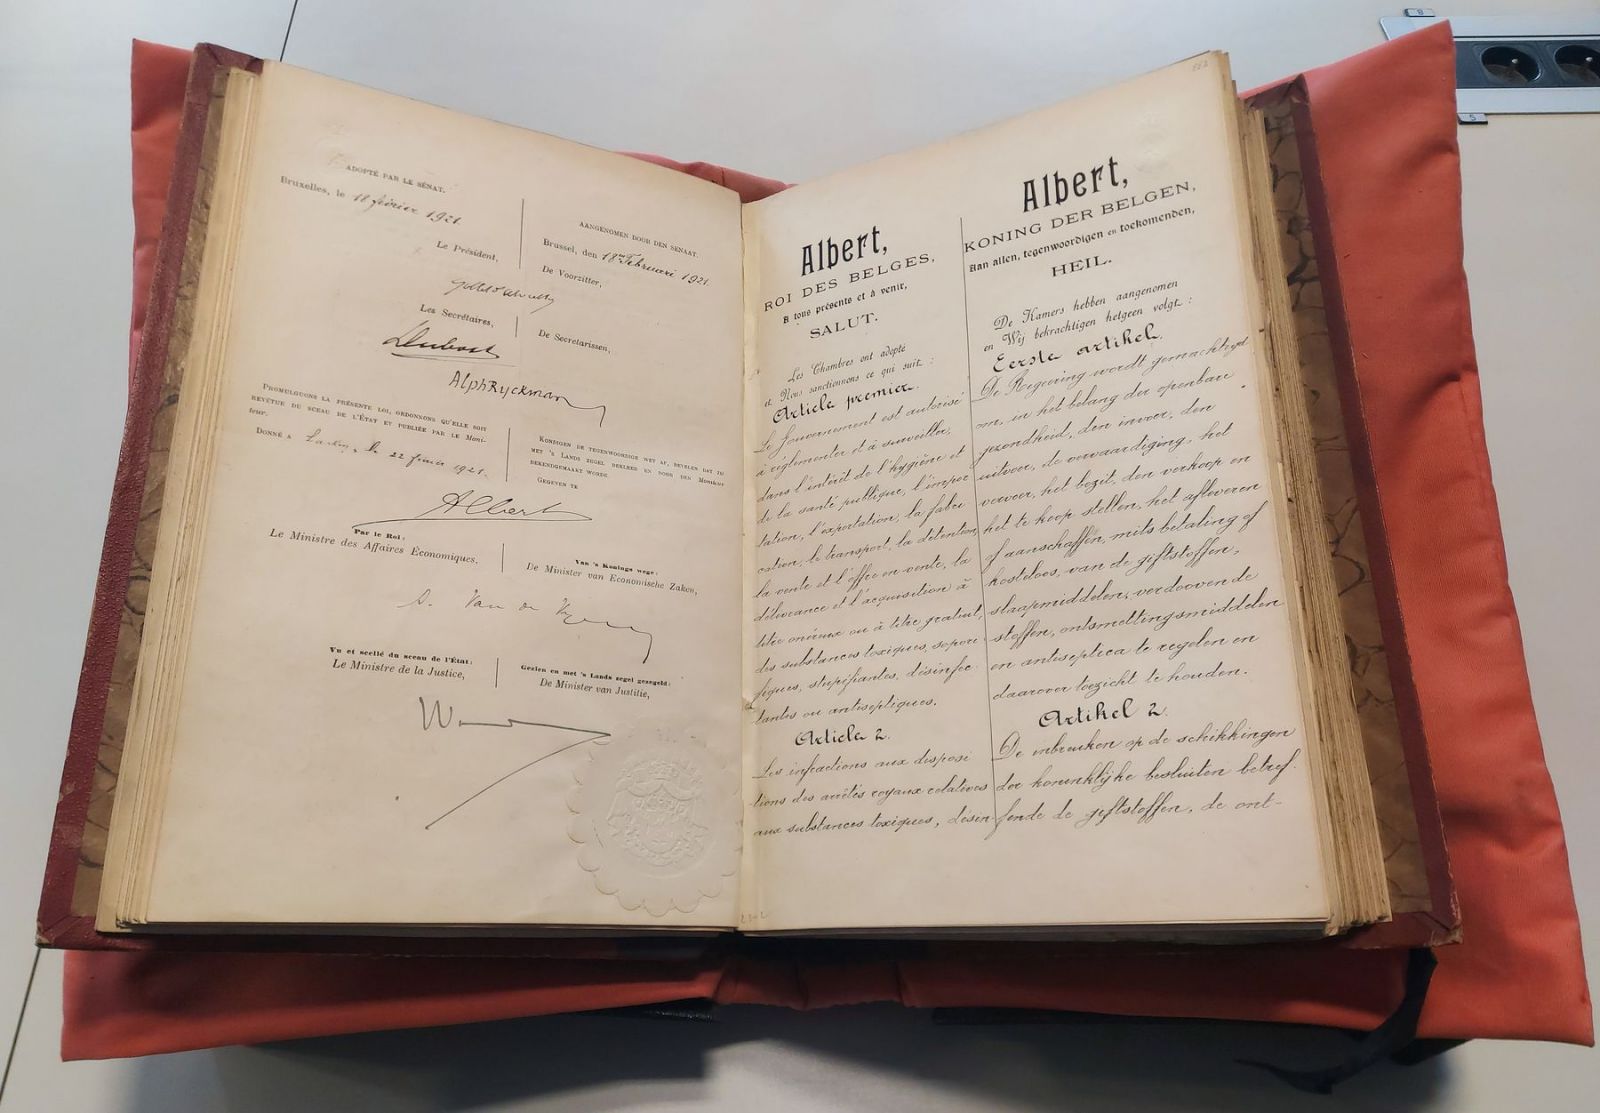 ADOPTÉ PAR LE SÉNAT.
Bruxelles, le 18 février 1921.
Le Président,
Les Secrétaires,
AANGENOMEN DOOR DEN SENAAT.
Brussel, den 18en Februari 1921.
De Voorzitter,
De Secretarissen,
AlphRyckmans
PROMULGUONS LA PRÉSENTE LOI, ORDONNONS QU'ELLE SOIT
REVÊTUE DU SCEAU DE L'ÉTAT ET PUBLIÉE PAR LE Moni-
teur.
DONNÉ A Laeken, le 22 février 1921.
KONDIGEN DE TEGENWOORDIGE WET AF, BEVELEN DAT ZE
MET 'S LANDS ZEGEL BEKLEED EN DOOR DEN Moniteur
BEKENDGEMAAKT WORDE.
GEGEVEN TE
Albert
Par le Roi:
Le Ministre des Affaires Économiques,
Van 's Konings wege:
De Minister van Economische Zaken,
Vu et scellé du sceau de l'État:
Le Ministre de la Justice,
Gezien en met 's Lands zegel gezegeld:
De Minister van Justitie,
Albert,
ROI DES BELGES,
A tous présents et à venir,
SALUT.
Les Chambres ont adopté
et Nous sanctionnons ce qui suit :
Article premier.
Le Gouvernement est autorisé
à réglementer et à surveiller,
dans l'intérêt de l'hygiène et
de la santé publique, l'impor
tation, l'exportation, la fabri
cation, le transport, la détention,
la vente et l'offre en vente, la
délivrance et l'acquisition à
titre onéreux ou à titre gratuit,
des substances toxiques, sopori
fiques, stupéfiantes, désinfec
tantes ou antiseptiques.
Article 2.
Les infractions aux disposi
tions des arrêtés royaux relatives
aux substances toxiques, désin
Albert,
KONING DER BELGEN,
Aan allen, tegenwoordigen en toekomenden,
HEIL.
De Kamers hebben aangenomen
en Wij bekrachtigen hetgeen volgt :
Eerste artikel.
De Regeering wordt gemachtigd
om, in het belang der openbare
gezondheid, den invoer, den
uitvoer, de vervaardiging, het
vervoer, het bezit, den verkoop en
het te koop stellen, het afleveren
of aanschaffen, mits betaling of
kosteloos, van de giftstoffen,
slaapmiddelen, verdoovende
stoffen, ontsmettingsmiddelen
en antiseptica te regelen en
daarover toezicht te houden.
Artikel 2.
De inbreuken op de schikkingen
der koninklijke besluiten betref-
fende de giftstoffen, de ont-